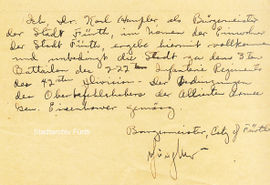 Ich, Dr. Karl Häupler, als Bürgermeister
der Stadt Fürth, im Namen der Einwohner
der Stadt Fürth, ergebe hiermit vollkommen
und unbedingt die Stadt an das 3te
Battalion des 222ten Infantrie Regiments
des 42ten Division - den Bedingungen
des Oberbefehlshabers der Allierten Armee
Gen. Eisenhower gemäss.
Burgermeister, City of Fürth
Stadtarchiv Fürth